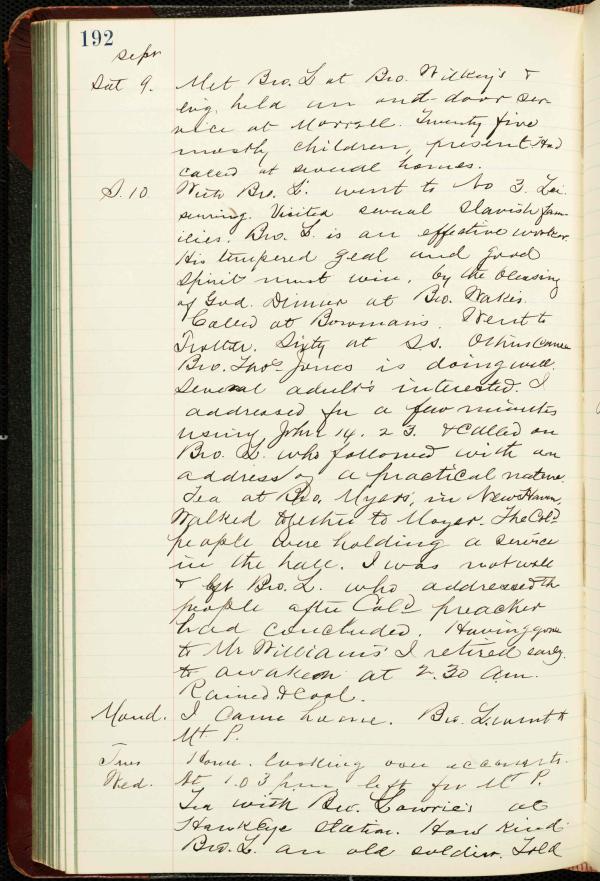 192
Sepr
Sat 9. Met Bro. L at Bro. Wilkey's &
evg. held an out-door ser-
vice at Morrell. Twenty five
mostly children, present. Had
called at several homes.
S. 10 With Bro. L. went to No 3. Lei
senring. Visited several Slavish fam-
ilies. Bro. L. is an effective worker.
His tempered zeal and good
spirit must win, by the blessing
of God. Dinner at Bro. Wakes.
Called at Bowman's. Went to
Trotter. Sixty at S.S. Others came
Bro. Thos. Jones is doing well.
Several adults interested. I
addressed for a few minutes
using John 14. 23. & called on
Bro. L. who followed with an
address of a practical nature.
Tea at Bro. Myers', in New Haven,
Walked together to Moyer. The Cold
people were holding a service
in the hall. I was not well
& left Bro. L. who addressed the
people after Cold preacher
had concluded. Having gone
to Mr Williams' I retired early
to awaken at 2.30 a.m.
Rained & cool.
Mond. I came home. Bro. L. went to
Mt. P.
Tues Home. looking over accounts.
Wed. At 1.03 p.m. left for Mt P.
Tea with Bro. Lowrie's at
Hawkeye Station. How kind
Bro. L. an old soldier. Told